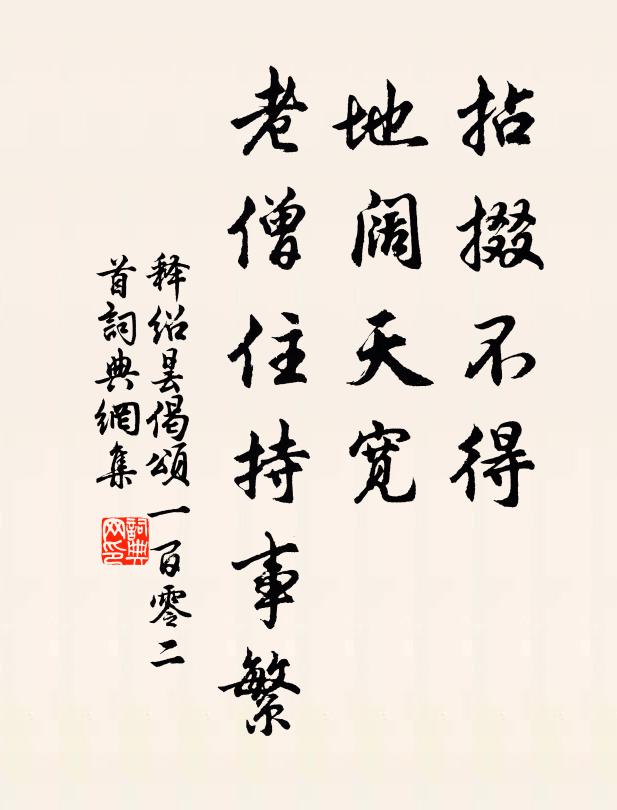 拈掇不得
地阔天宽
老僧住持事繁
释绍昙偈颂一百零二
首詞典網集
詞典
网印